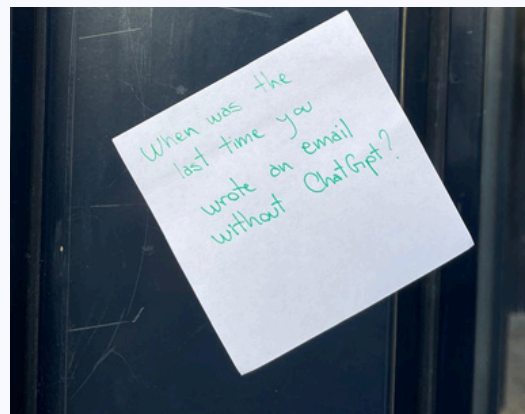 When was the
last time you
wrote an email
without ChatGpt?